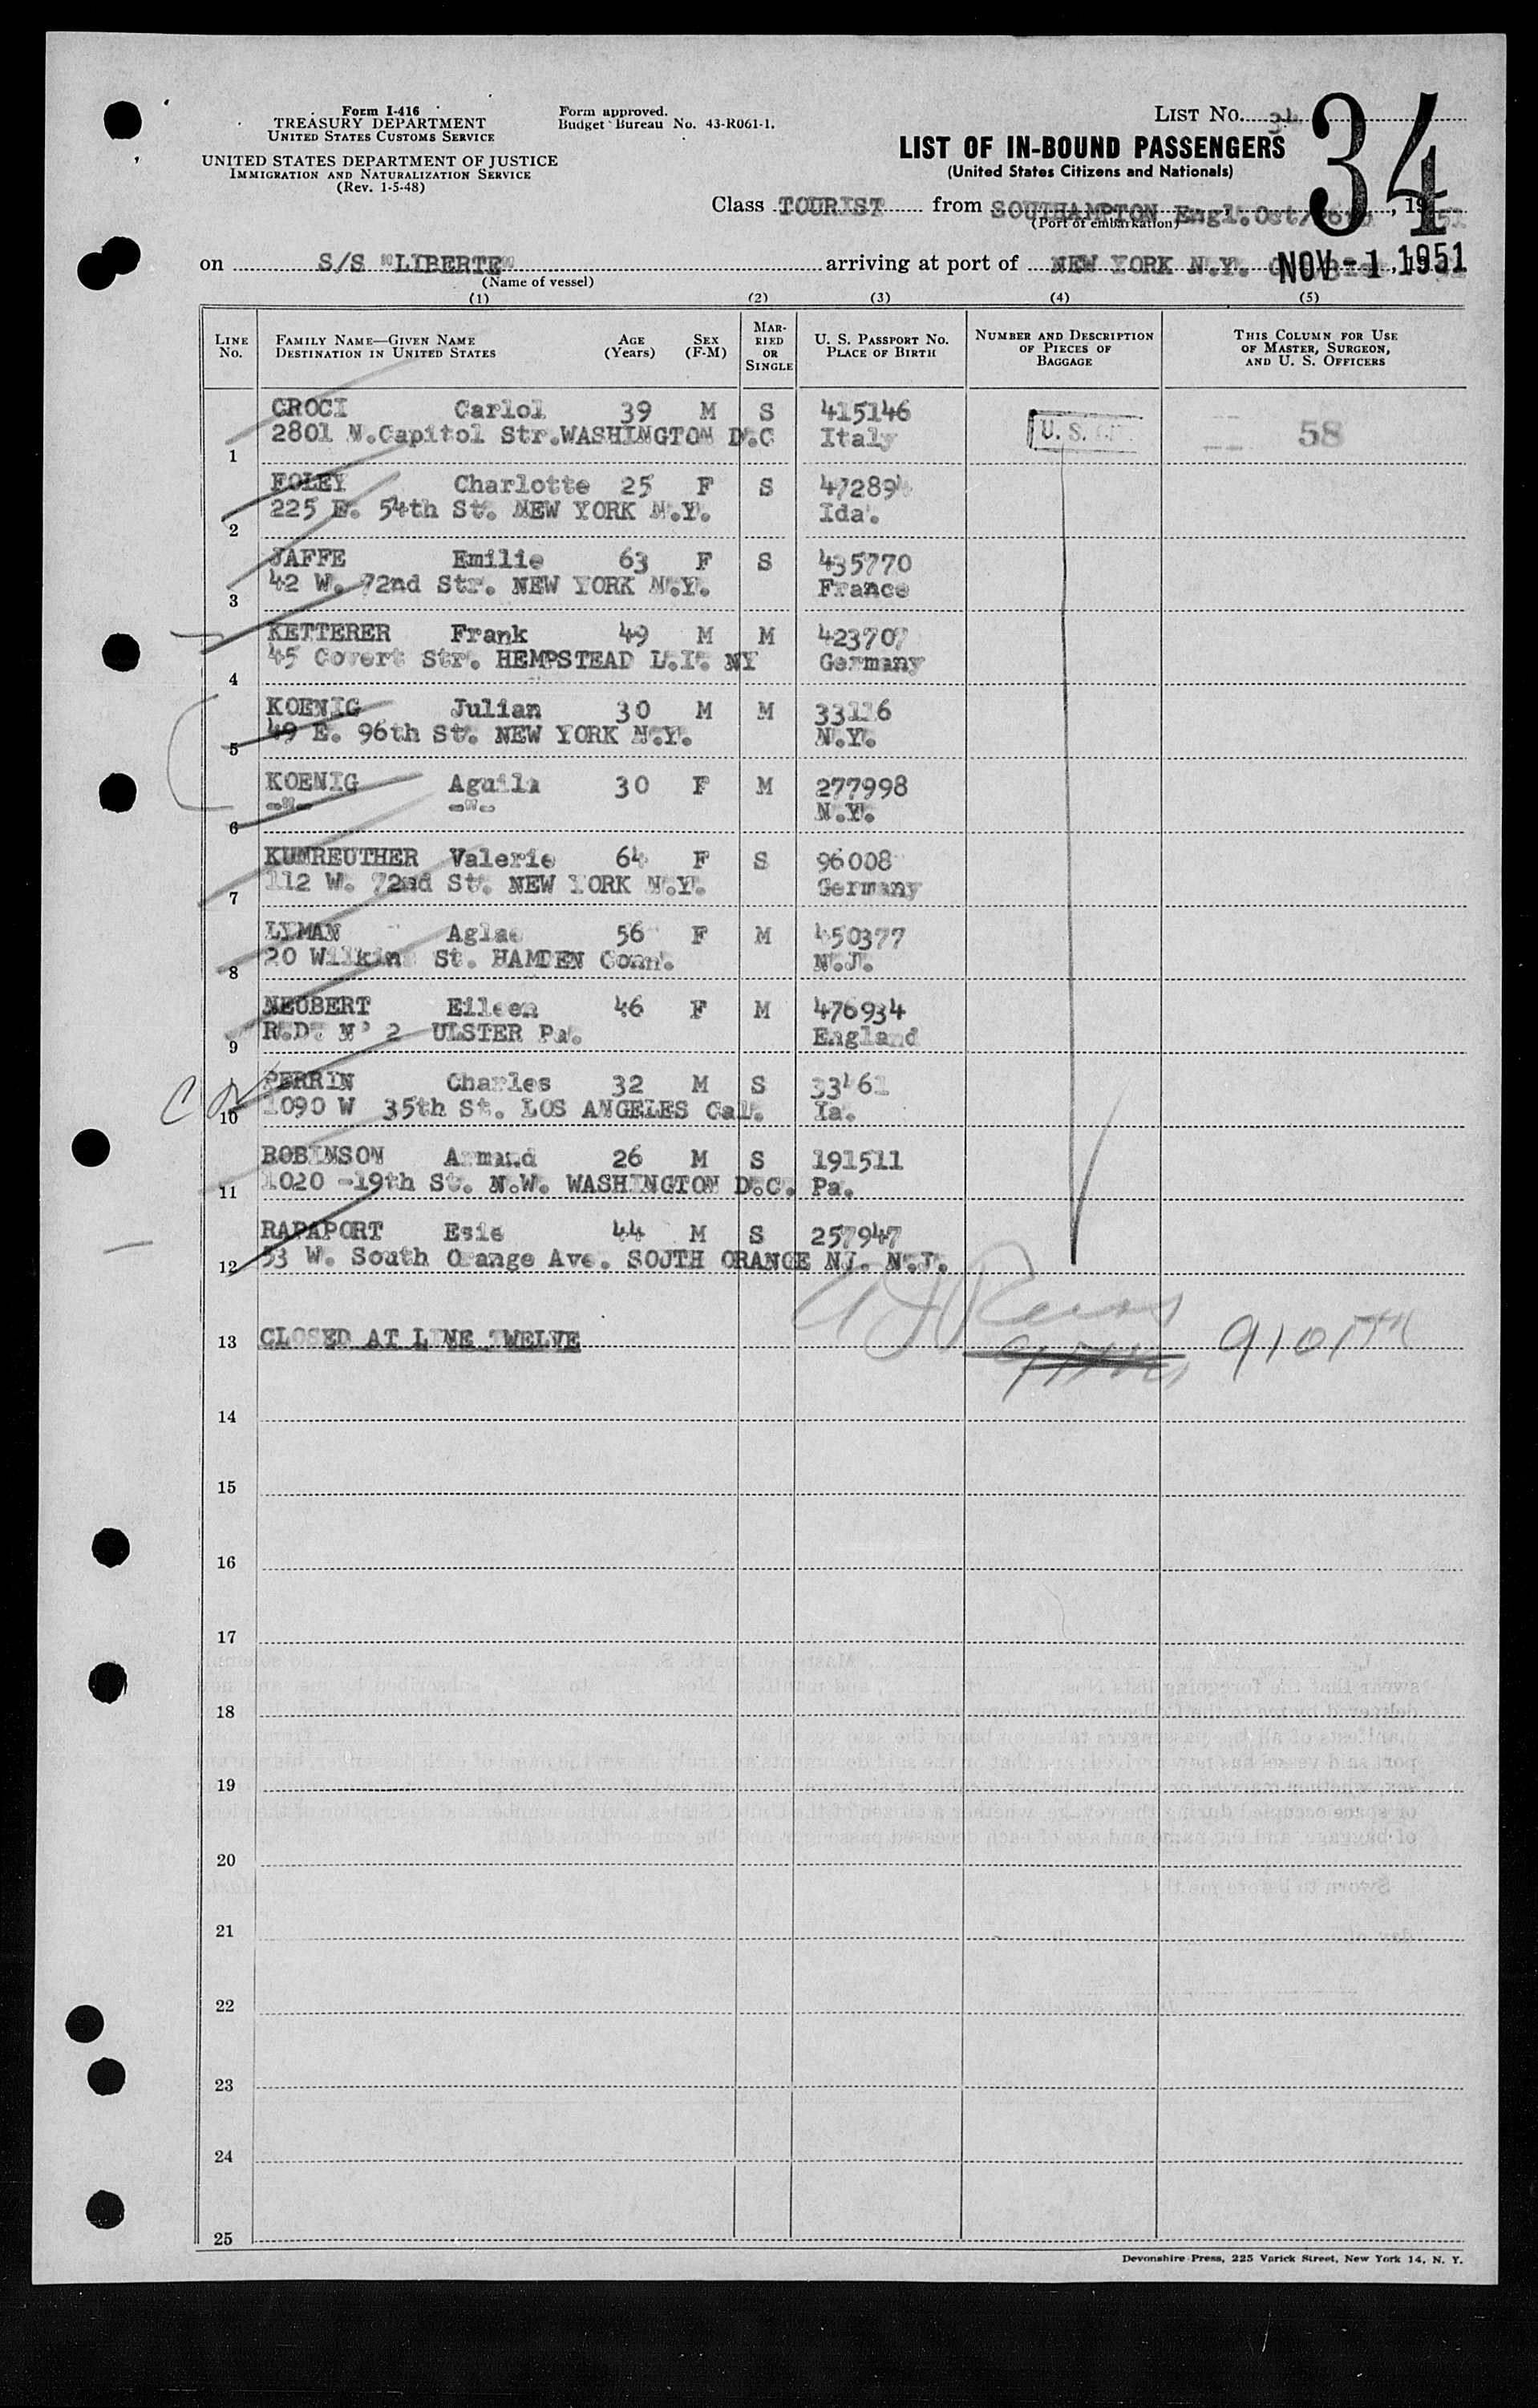 Form I-416
TREASURY DEPARTMENT
UNITED STATES CUSTOMS SERVICE
UNITED STATES DEPARTMENT OF JUSTICE
IMMIGRATION AND NATURALIZATION SERVICE
(Rev. 1-5-48)
Form approved.
Budget Bureau No. 43-R061-1.
LIST No. 34
34
LIST OF IN-BOUND PASSENGERS
(United States Citizens and Nationals)
Class TOURIST from SOUTHAMPTON Engl. Oct, 1951
(Port of embarkation)
on S/S "LIBERTE" arriving at port of NEW YORK N.Y. NOV - 1 1951
(Name of vessel)
(1) (2) (3) (4) (5)
LINE No.
FAMILY NAME—GIVEN NAME
DESTINATION IN UNITED STATES
AGE (Years)
SEX (F-M)
MARRIED OR SINGLE
U. S. PASSPORT NO.
PLACE OF BIRTH
NUMBER AND DESCRIPTION OF PIECES OF BAGGAGE
THIS COLUMN FOR USE OF MASTER, SURGEON, AND U. S. OFFICERS
CROCI Carlol 39 M S 415146
1 2801 N.Capitol Str.WASHINGTON D.C Italy U. S. 58
FOLEY Charlotte 25 F S 472894
2 225 E. 54th St. NEW YORK N.Y. Ida.
JAFFE Emilie 63 F S 435770
3 42 W. 72nd Str. NEW YORK N.Y. France
KETTERER Frank 49 M M 423707
4 45 Covert Str. HEMPSTEAD L.I. NY Germany
KOENIG Julian 30 M M 33116
5 49 E. 96th St. NEW YORK N.Y. N.Y.
KOENIG Aguila 30 F M 277998
6 -"- -"- N.Y.
KUNREUTHER Valerie 64 F S 96008
7 112 W. 72nd St. NEW YORK N.Y. Germany
LYMAN Aglae 56 F M 450377
8 20 Wilkins St. HAMDEN Conn. N.J.
NEUBERT Eileen 46 F M 476934
9 R.D. N° 2 ULSTER Pa. England
PERRIN Charles 32 M S 33461
10 1090 W 35th St. LOS ANGELES Cal. Ia.
ROBINSON Armand 26 M S 191511
11 1020 -19th St. N.W. WASHINGTON D.C. Pa.
RAPAPORT Esie 44 M S 257947
12 53 W. South Orange Ave. SOUTH ORANGE NJ. N.J.
13 CLOSED AT LINE TWELVE
14
15
16
17
18
19
20
21
22
23
24
25
Devonshire Press, 225 Varick Street, New York 14, N. Y.